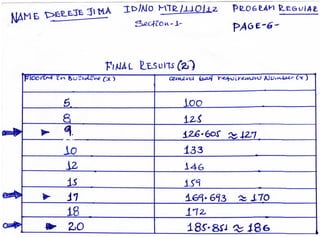 NAME DEREJE JIMA ID/NO MTR/110/12 PROGRAM REGULAR
Section-1- PAGE-6-
FINAL RESULTS (2)
Floor(s) In Building (x) cement bag requirement Number (Y)
5 100
8 125
9 126.605 ≈ 127
10 133
12 146
15 159
17 169.693 ≈ 170
18 172
20 185.851 ≈ 186